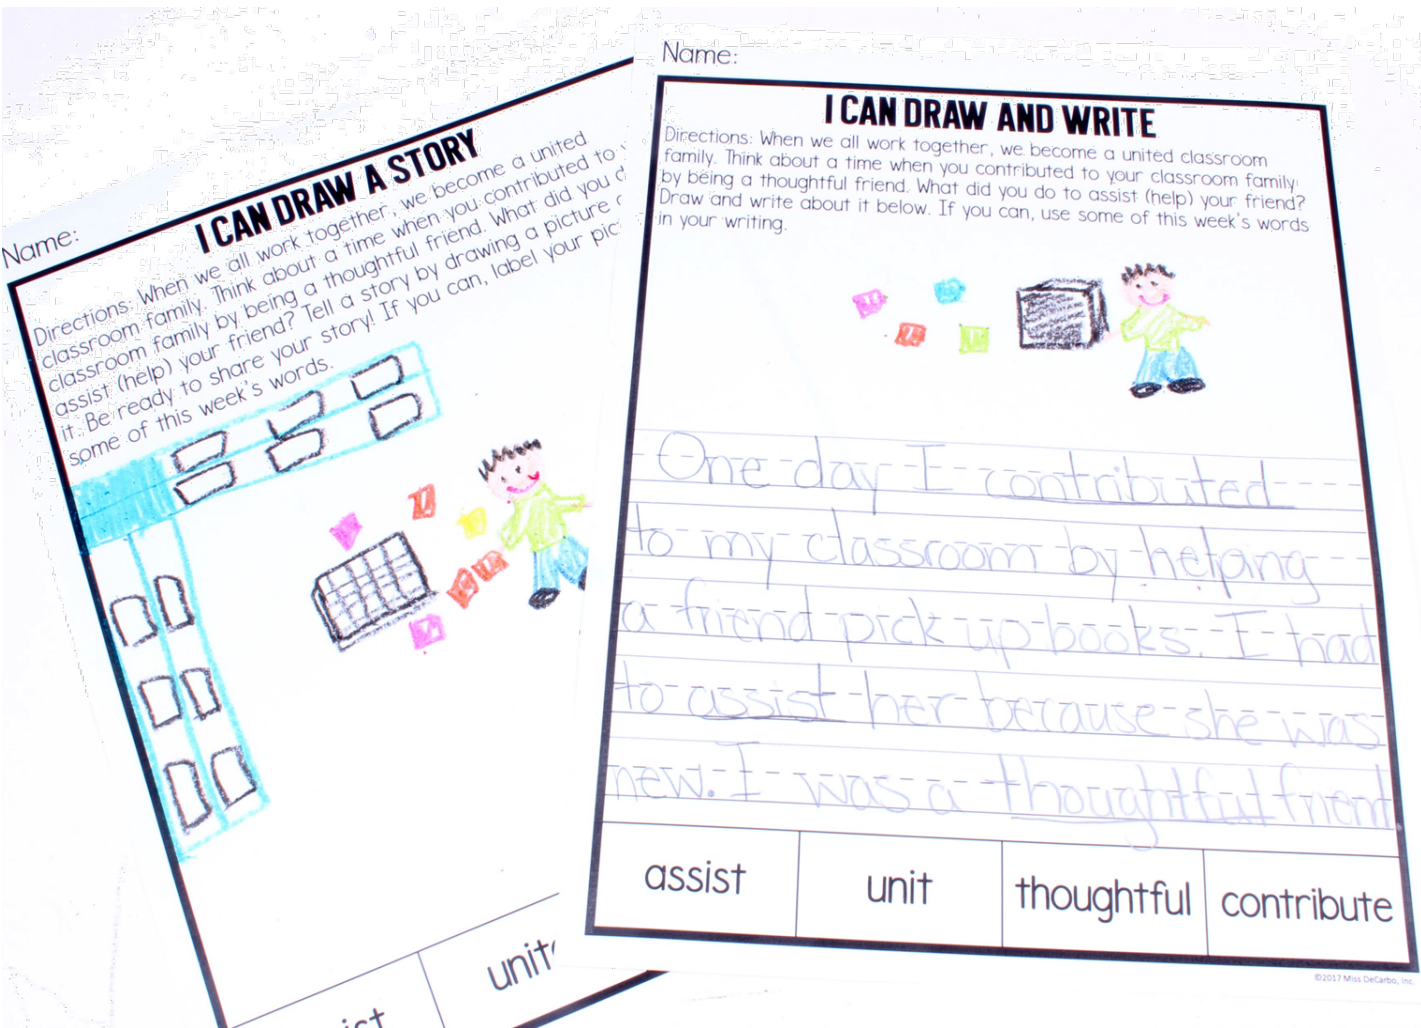 Name:
I CAN DRAW A STORY
Directions: When we all work together, we become a united
classroom family. Think about a time when you contributed to
classroom family by being a thoughtful friend. What did you
assist (help) your friend? Tell a story by drawing a picture
it. Be ready to share your story! If you can, label your
some of this week's words.
Name:
I CAN DRAW AND WRITE
Directions: When we all work together, we become a united classroom
family. Think about a time when you contributed to your classroom family
by being a thoughtful friend. What did you do to assist (help) your friend?
Draw and write about it below. If you can, use some of this week's words
in your writing.
One day I contributed
to my classroom by helping
a friend pick up books. I had
to assist her because she was
new. I was a thoughtful friend.
assist unit thoughtful contribute
©2017 Miss DeCarbo, Inc.